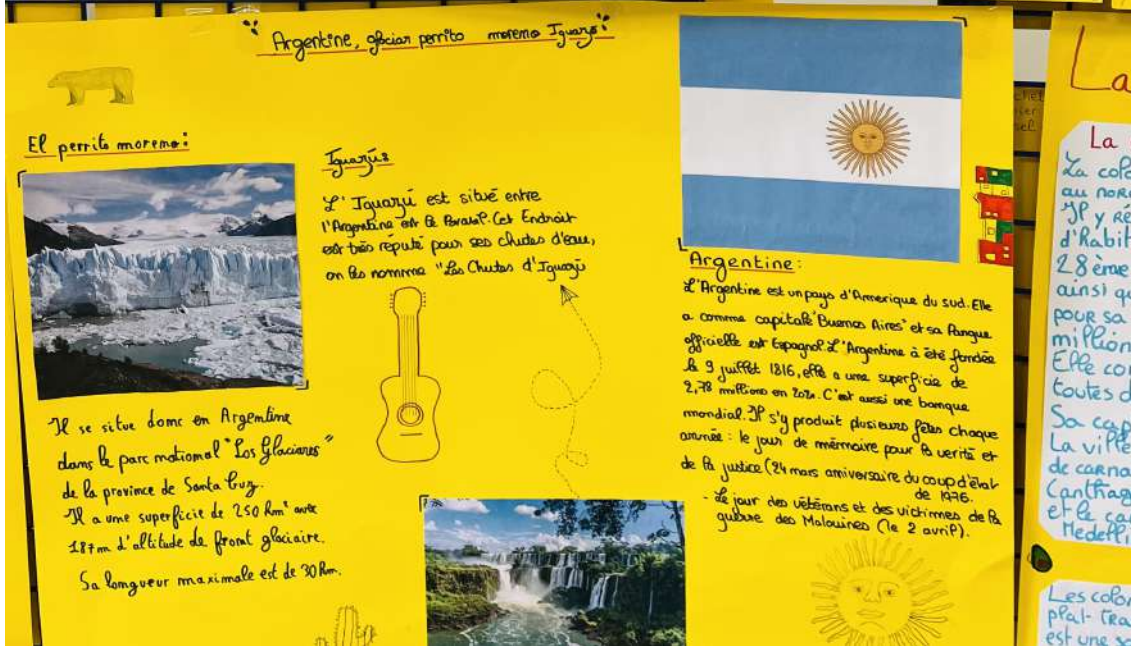 Argentine, glaciar perrito moreno Iguazú
El perrito moreno:
Il se situe donc en Argentine
dans le parc national "Los Glaciares"
de la province de Santa Cruz.
Il a une superficie de 250 km² avec
187m d'altitude de front glaciaire.
Sa longueur maximale est de 30 km.
Iguazú:
L'Iguazú est situé entre
l'Argentine est le Brésil. Cet Endroit
est très réputé pour ses chutes d'eau,
on les nomme "Les Chutes d'Iguazú
Argentine:
L'Argentine est un pays d'Amerique du sud. Elle
a comme capitale "Buenos Aires" et sa langue
officielle est Espagnol. L'Argentine à été fondée
le 9 juillet 1816, elle a une superficie de
2,78 millions en 2021. C'est aussi une banque
mondial. Il s'y produit plusieurs fêtes chaque
année: le jour de mémoire pour la verité et
de la justice (24 mars anniversaire du coup d'état
de 1976.
- Le jour des vétérans et des victimes de la
guerre des Malouines (le 2 avril).
La
La
La colo
au nor
Il y ré
d'habit
28ème
ainsi qu
pour sa
million
Elle con
toutes d
Sa cap
La ville
de carna
Carthag
et le ca
Medelli
Les color
plat- tra
est une s